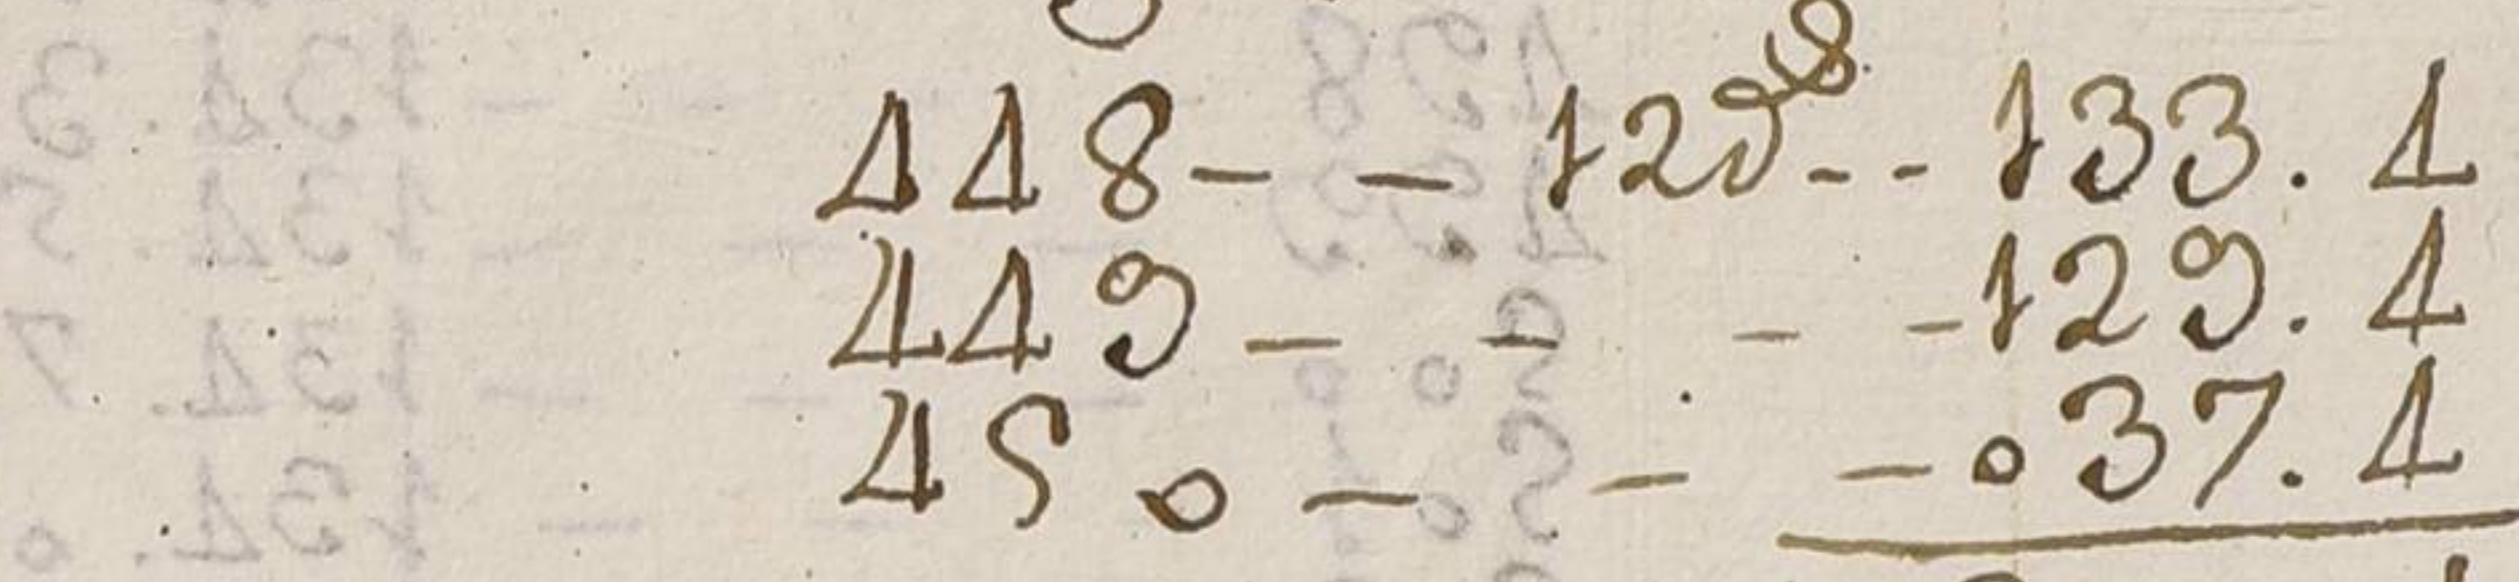 448 - - 129 8 - - 133. 4
449 - - - - 129. 4
450 - - - 037. 4